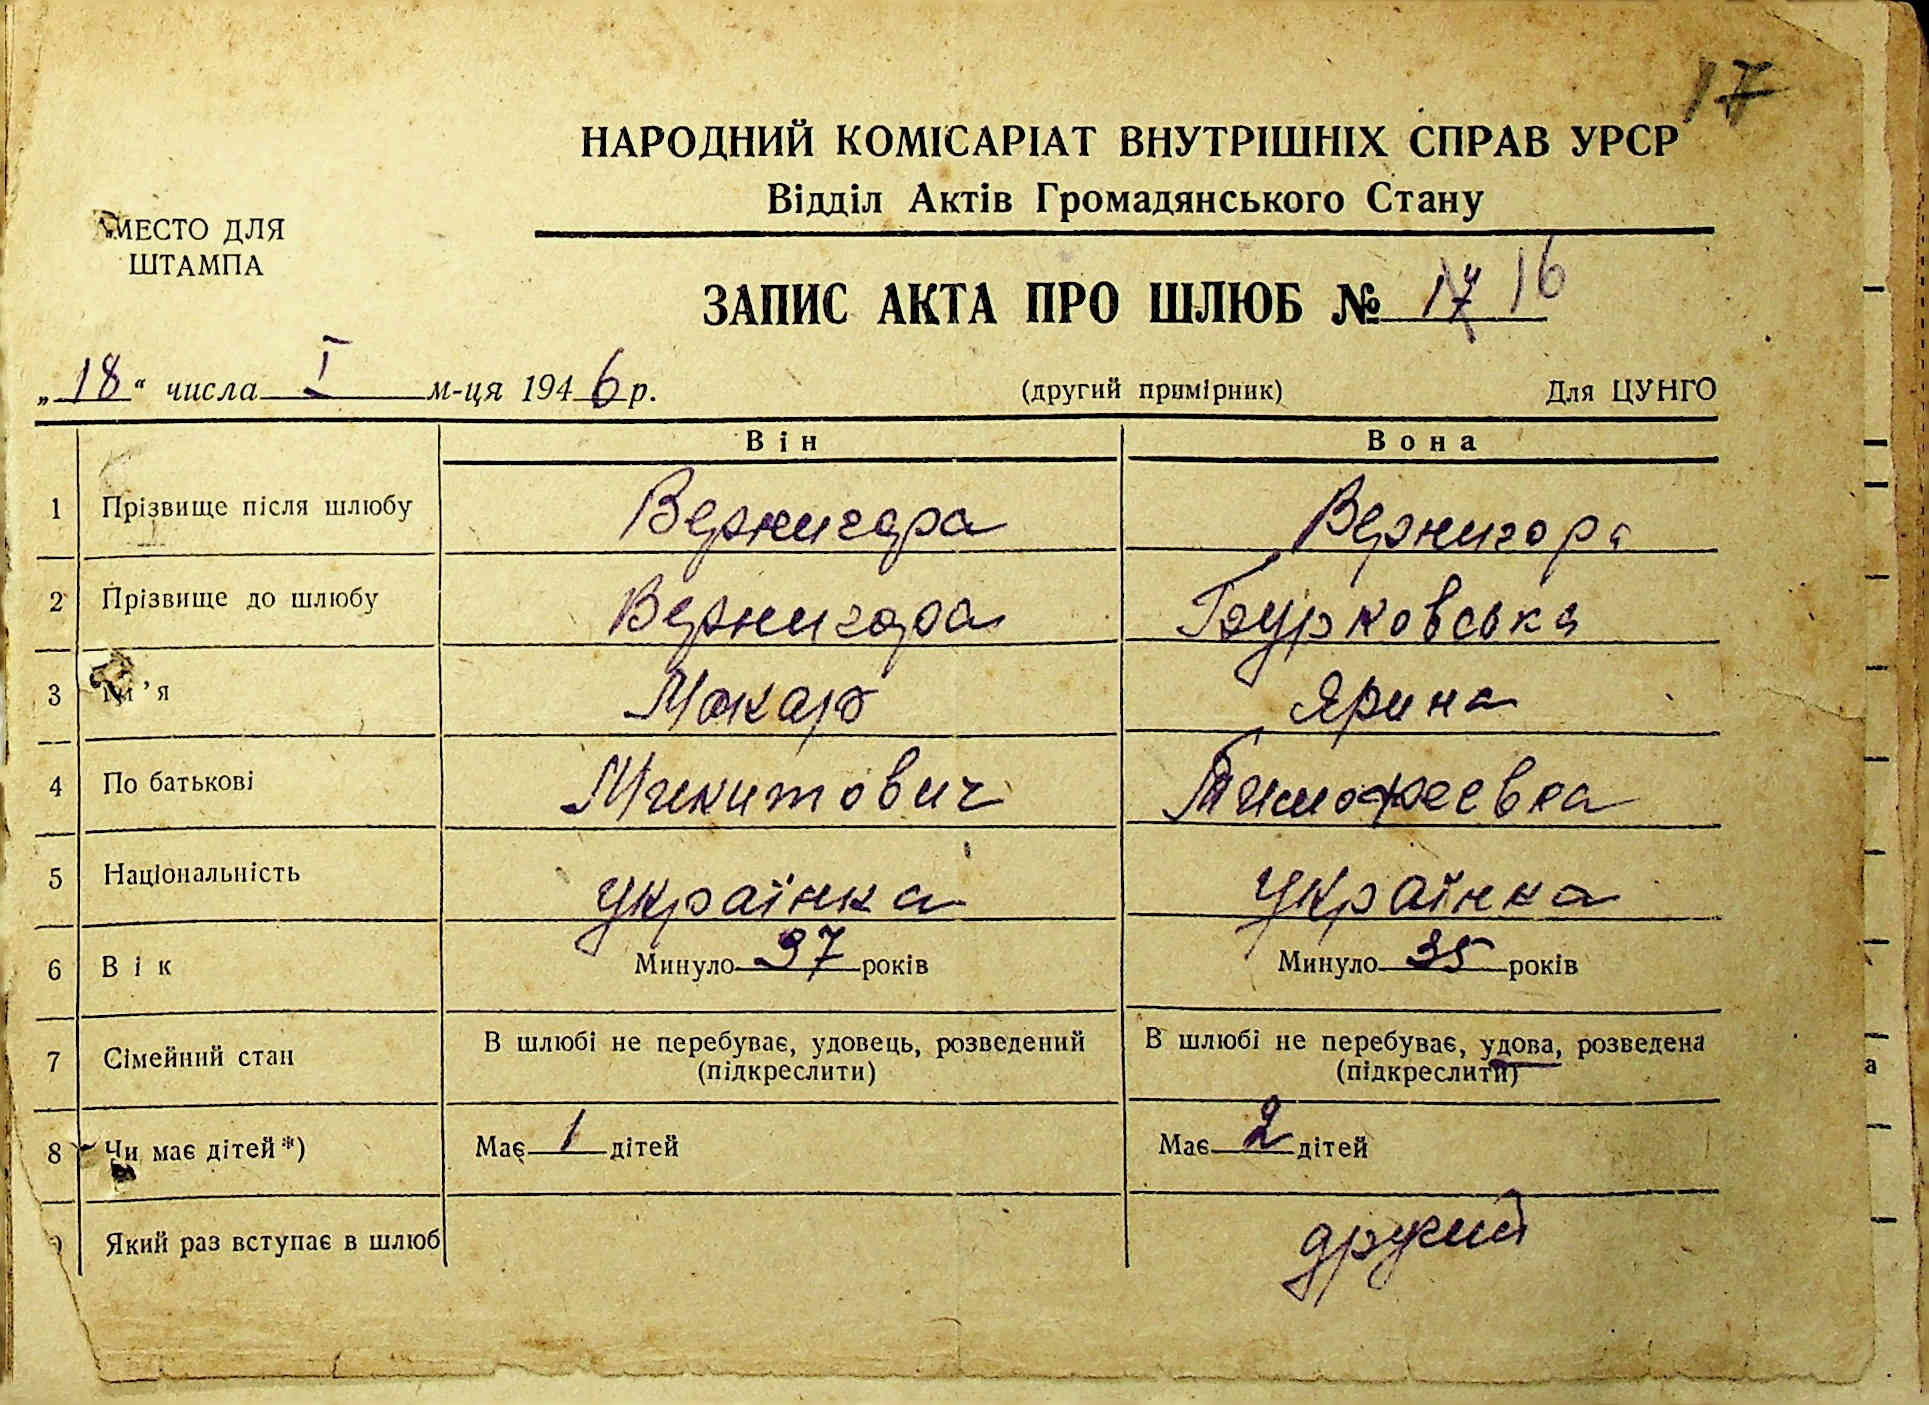 17
НАРОДНИЙ КОМІСАРІАТ ВНУТРІШНІХ СПРАВ УРСР
Відділ Актів Громадянського Стану
МЕСТО ДЛЯ
ШТАМПА
ЗАПИС АКТА ПРО ШЛЮБ № 17 16
„18“ числа I м-ця 1946 р. (другий примірник) Для ЦУНГО
Він Вона
1 Прізвище після шлюбу Вернигора Вернигора
2 Прізвище до шлюбу Вернигора Бурковська
3 Ім’я Макар Ярина
4 По батькові Микитович Тимофеевна
5 Національність українка українка
6 Вік Минуло 37 років Минуло 35 років
7 Сімейний стан В шлюбі не перебуває, удовець, розведений В шлюбі не перебуває, удова, розведена
(підкреслити) (підкреслити)
8 Чи має дітей*) Має 1 дітей Має 2 дітей
Який раз вступає в шлюб другий
а